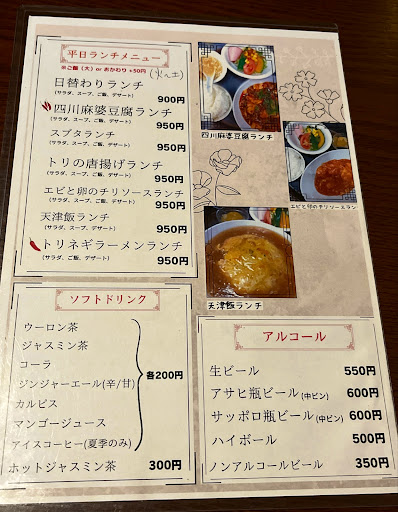 平日ランチメニュー
※ご飯(大)or おかわり +50円
(火〜土)
日替わりランチ
(サラダ、スープ、ご飯、デザート) 900円
四川麻婆豆腐ランチ
(サラダ、スープ、ご飯、デザート) 950円
スブタランチ
(サラダ、スープ、ご飯、デザート) 950円
トリの唐揚げランチ
(サラダ、スープ、ご飯、デザート) 950円
エビと卵のチリソースランチ
(サラダ、スープ、ご飯、デザート) 950円
天津飯ランチ
(サラダ、スープ、デザート) 950円
トリネギラーメンランチ
(サラダ、ご飯、デザート) 950円
四川麻婆豆腐ランチ
エビと卵のチリソースラン
天津飯ランチ
ソフトドリンク
ウーロン茶
ジャスミン茶
コーラ
ジンジャーエール(辛/甘)
カルピス
マンゴージュース
アイスコーヒー(夏季のみ)
各200円
ホットジャスミン茶 300円
アルコール
生ビール 550円
アサヒ瓶ビール(中ビン) 600円
サッポロ瓶ビール(中ビン) 600円
ハイボール 500円
ノンアルコールビール 350円